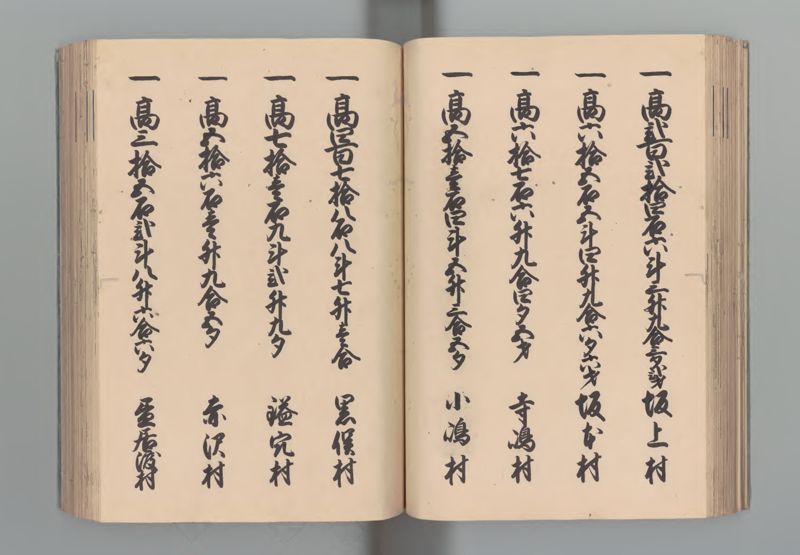 一高弐百弐拾四石六斗三升九合壱夕弐才坂上村
一高六拾五石五斗四升九合六夕六才坂本村
一高六拾七石六升九合四夕五才寺嶋村
一高五拾壱石四斗五升三合五夕小嶋村
一高四百七拾八石八斗七升壱合黒俣村
一高七拾壱石九斗弐升九夕鎰穴村
一高五拾六石壱升九合五夕赤沢村
一高三拾五石弐斗八升六合六夕居渡村